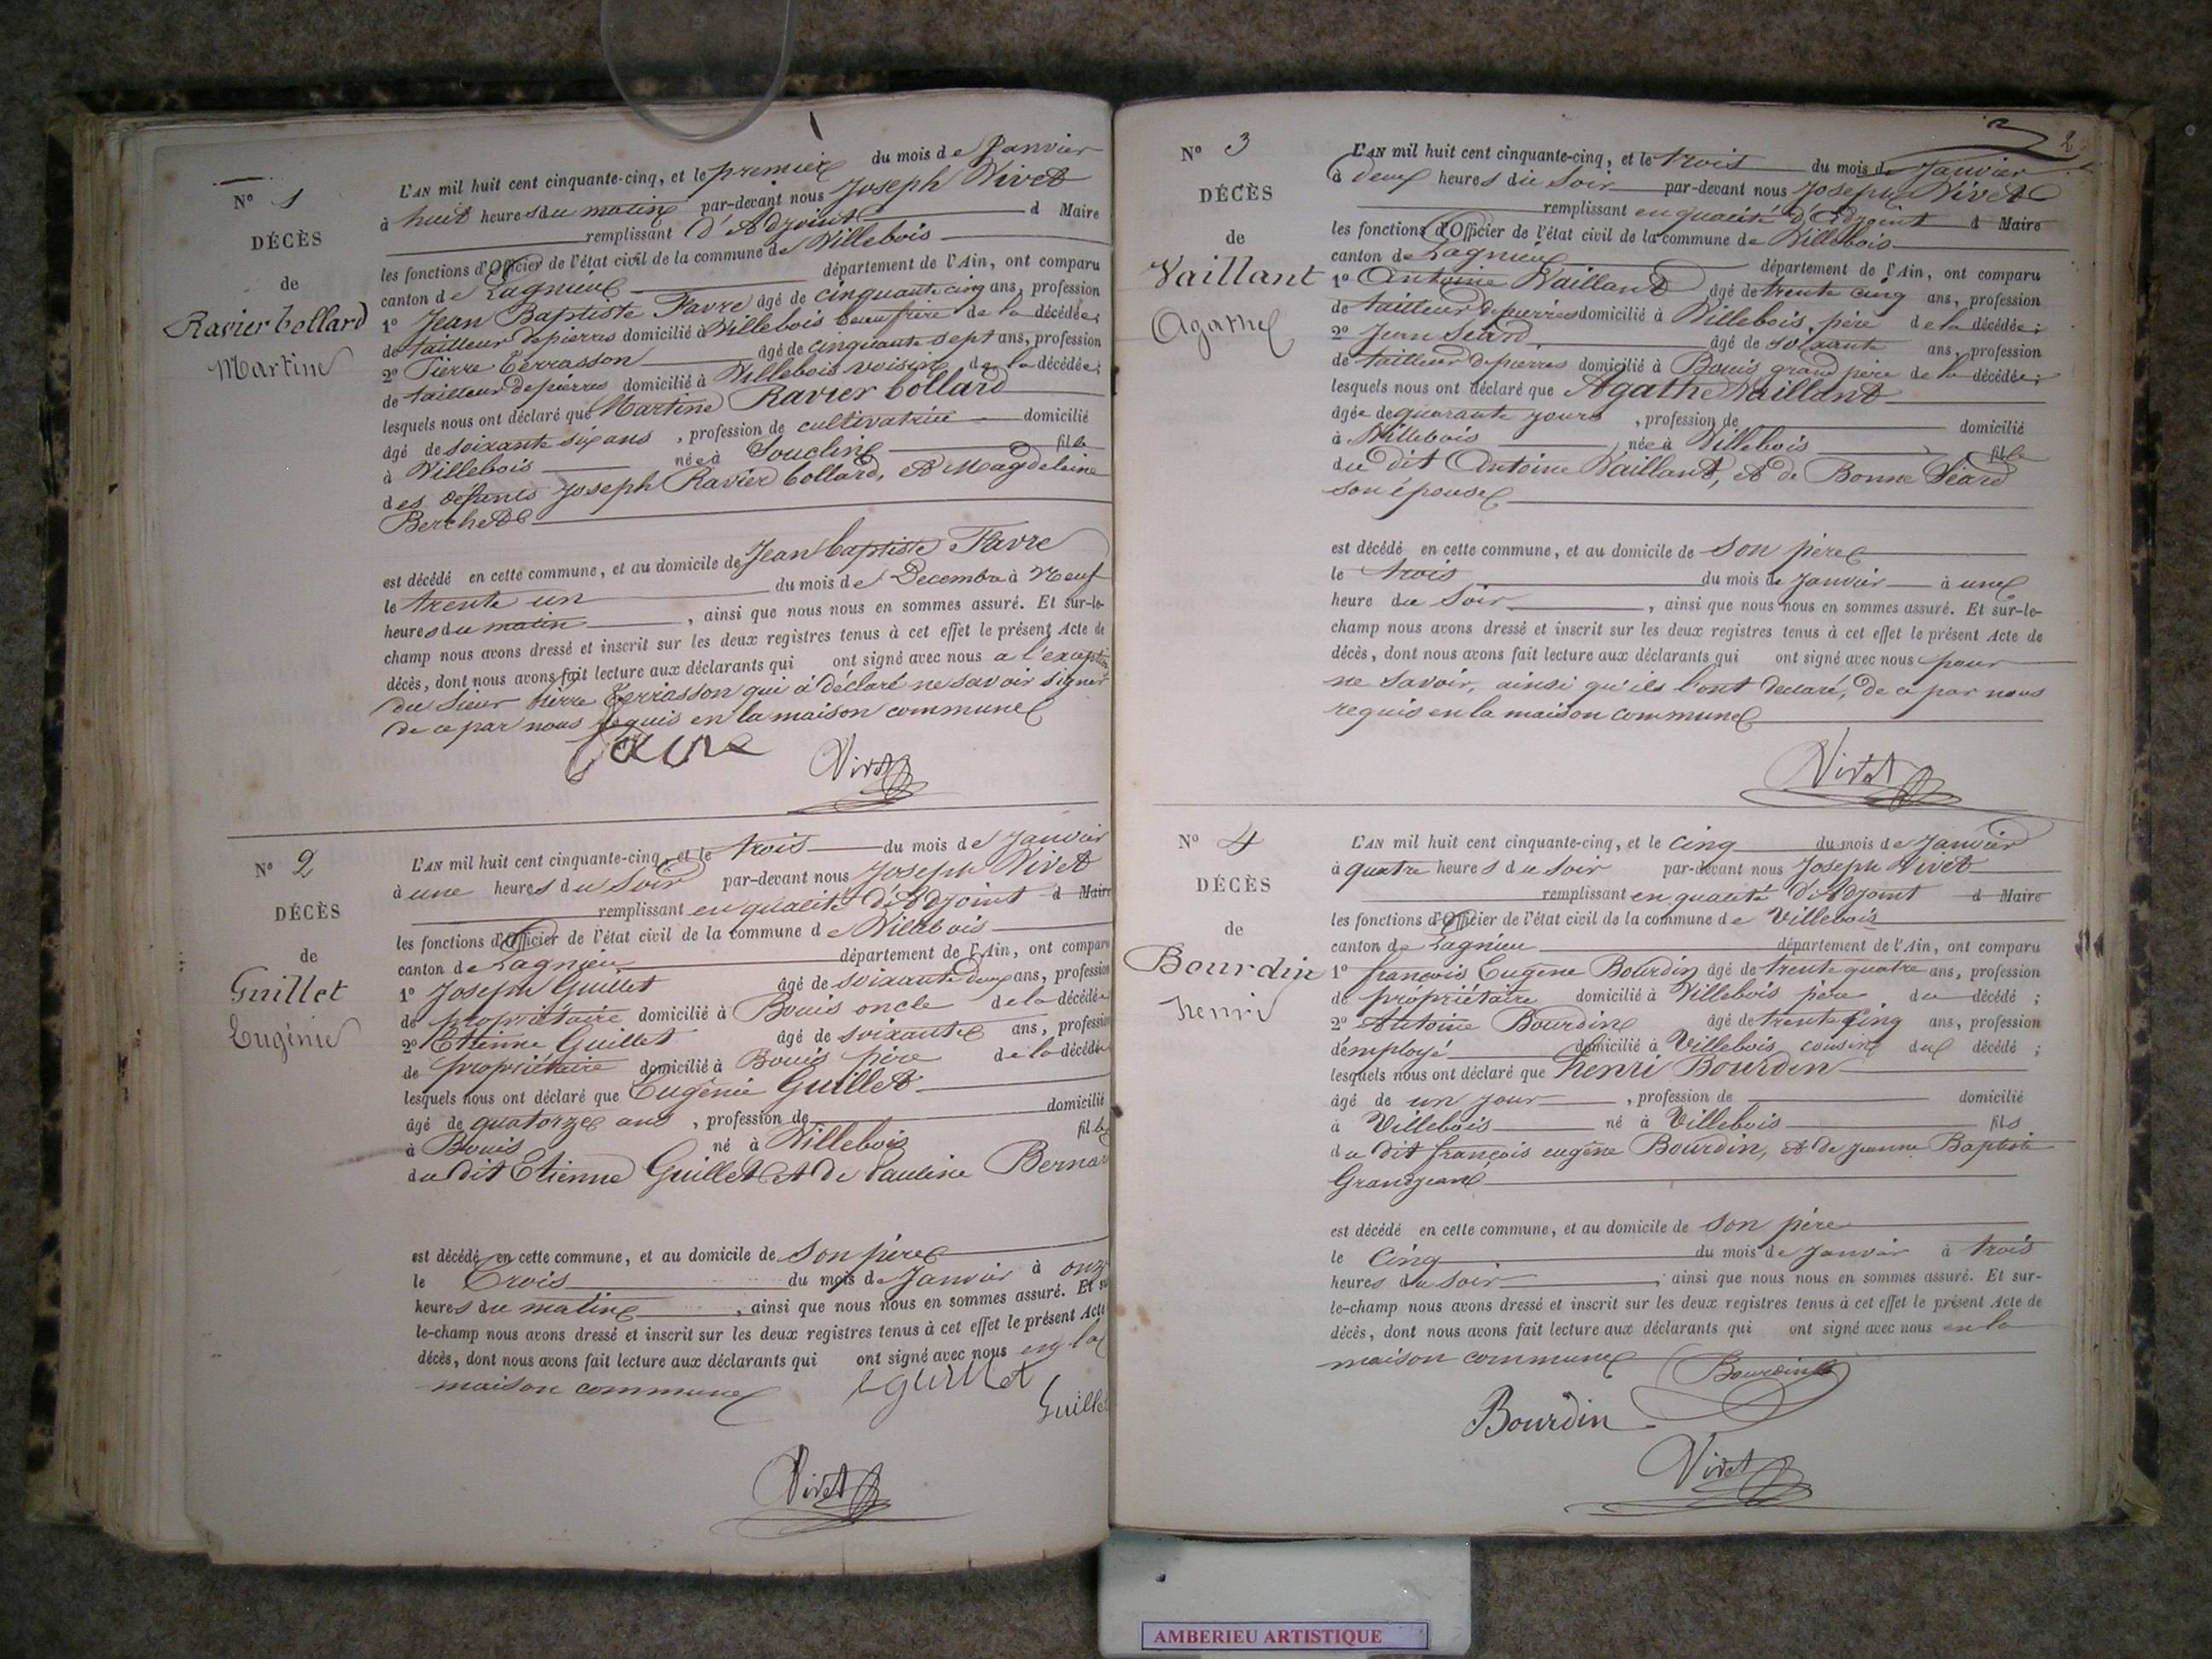 N° 1
DÉCÈS
de
Ravier bollard
Martine
L'AN mil huit cent cinquante-cinq, et le premier du mois de Janvier
à huit heures du matin par-devant nous Joseph Vivet
remplissant d'Adjoint d Maire
les fonctions d'Officier de l'état civil de la commune de Villebois
canton de Lagnieu département de l'Ain, ont comparu
1° Jean Baptiste Favre âgé de cinquante cinq ans, profession
de tailleur de pierres domicilié à Villebois beau frère de la décédée;
2° Pierre Terrasson âgé de cinquante sept ans, profession
de tailleur de pierres domicilié à Villebois voisin de la décédée;
lesquels nous ont déclaré que Martine Ravier bollard
âgé de soixante six ans, profession de cultivatrice domicilié
à Villebois née à Souclin fille
des defunts Joseph Ravier bollard, et Magdeleine
Berchet
est décédé en cette commune, et au domicile de Jean baptiste Favre
le trente un du mois de Decembre à Neuf
heures du matin, ainsi que nous nous en sommes assuré. Et sur-le-
champ nous avons dressé et inscrit sur les deux registres tenus à cet effet le présent Acte de
décès, dont nous avons fait lecture aux déclarants qui ont signé avec nous a l'exception
du Sieur Pierre Terrasson qui a déclaré ne savoir signer
de ce par nous requis en la maison commune
Favre
Vivet
N° 2
DÉCÈS
de
Guillet
Eugénie
L'AN mil huit cent cinquante-cinq, et le trois du mois de Janvier
à une heures du Soir par-devant nous Joseph Vivet
remplissant en qualité d'Adjoint d Maire
les fonctions d'Officier de l'état civil de la commune de Villebois
canton de Lagnieu département de l'Ain, ont comparu
1° Joseph Guillet âgé de soixante deux ans, profession
de propriétaire domicilié à Bouis oncle de la décédée
2° Etienne Guillet âgé de soixante ans, profession
de propriétaire domicilié à Bouis père de la décédée
lesquels nous ont déclaré que Eugénie Guillet
âgé de quatorze ans, profession de domicilié
à Bouis né à Villebois fille
du dit Etienne Guillet et de Pauline Bernar
est décédé en cette commune, et au domicile de son père
le Trois du mois de Janvier à onz
heures du matin, ainsi que nous nous en sommes assuré. Et su
le-champ nous avons dressé et inscrit sur les deux registres tenus à cet effet le présent Acte
décès, dont nous avons fait lecture aux déclarants qui ont signé avec nous en la
maison commune
eguillet
Guillet
Vivet
2
N° 3
DÉCÈS
de
Vaillant
Agathe
L'AN mil huit cent cinquante-cinq, et le trois du mois de Janvier
à deux heures du Soir par-devant nous Joseph Vivet
remplissant en qualité d'Adjoint d Maire
les fonctions d'Officier de l'état civil de la commune de Villebois
canton de Lagnieu département de l'Ain, ont comparu
1° Antoine Vaillant âgé de trente cinq ans, profession
de tailleur de pierres domicilié à Villebois, père de la décédée;
2° Jean Séard, âgé de soixante ans, profession
de tailleur de pierres domicilié à Bouis grand père de la décédée;
lesquels nous ont déclaré que Agathe Vaillant
âgée de quarante jours, profession de domicilié
à Villebois née à Villebois fille
du dit Antoine Vaillant, et de Bonne Séard
son épouse
est décédé en cette commune, et au domicile de son père
le trois du mois de Janvier à une
heure du Soir, ainsi que nous nous en sommes assuré. Et sur-le-
champ nous avons dressé et inscrit sur les deux registres tenus à cet effet le présent Acte de
décès, dont nous avons fait lecture aux déclarants qui ont signé avec nous pour
ne savoir, ainsi qu'ils l'ont declaré, de ce par nous
requis en la maison commune
Vivet
N° 4
DÉCÈS
de
Bourdin
henri
L'AN mil huit cent cinquante-cinq, et le cinq du mois de Janvier
à quatre heures du soir par-devant nous Joseph Vivet
remplissant en qualité d'Adjoint d Maire
les fonctions d'Officier de l'état civil de la commune de Villebois
canton de Lagnieu département de l'Ain, ont comparu
1° françois Eugène Bourdin âgé de trente quatre ans, profession
de propriétaire domicilié à Villebois père du décédé ;
2° Antoine Bourdin âgé de trente cinq ans, profession
d'employé domicilié à Villebois cousin du décédé ;
lesquels nous ont déclaré que henri Bourdin
âgé de un jour, profession de domicilié
à Villebois né à Villebois fils
du dit françois eugène Bourdin, et de jeanne Baptiste
Grandjean
est décédé en cette commune, et au domicile de son père
le Cinq du mois de Janvier à trois
heures du soir, ainsi que nous nous en sommes assuré. Et sur-
le-champ nous avons dressé et inscrit sur les deux registres tenus à cet effet le présent Acte de
décès, dont nous avons fait lecture aux déclarants qui ont signé avec nous en la
maison commune
Bourdin
Bourdin
Vivet
AMBERIEU ARTISTIQUE